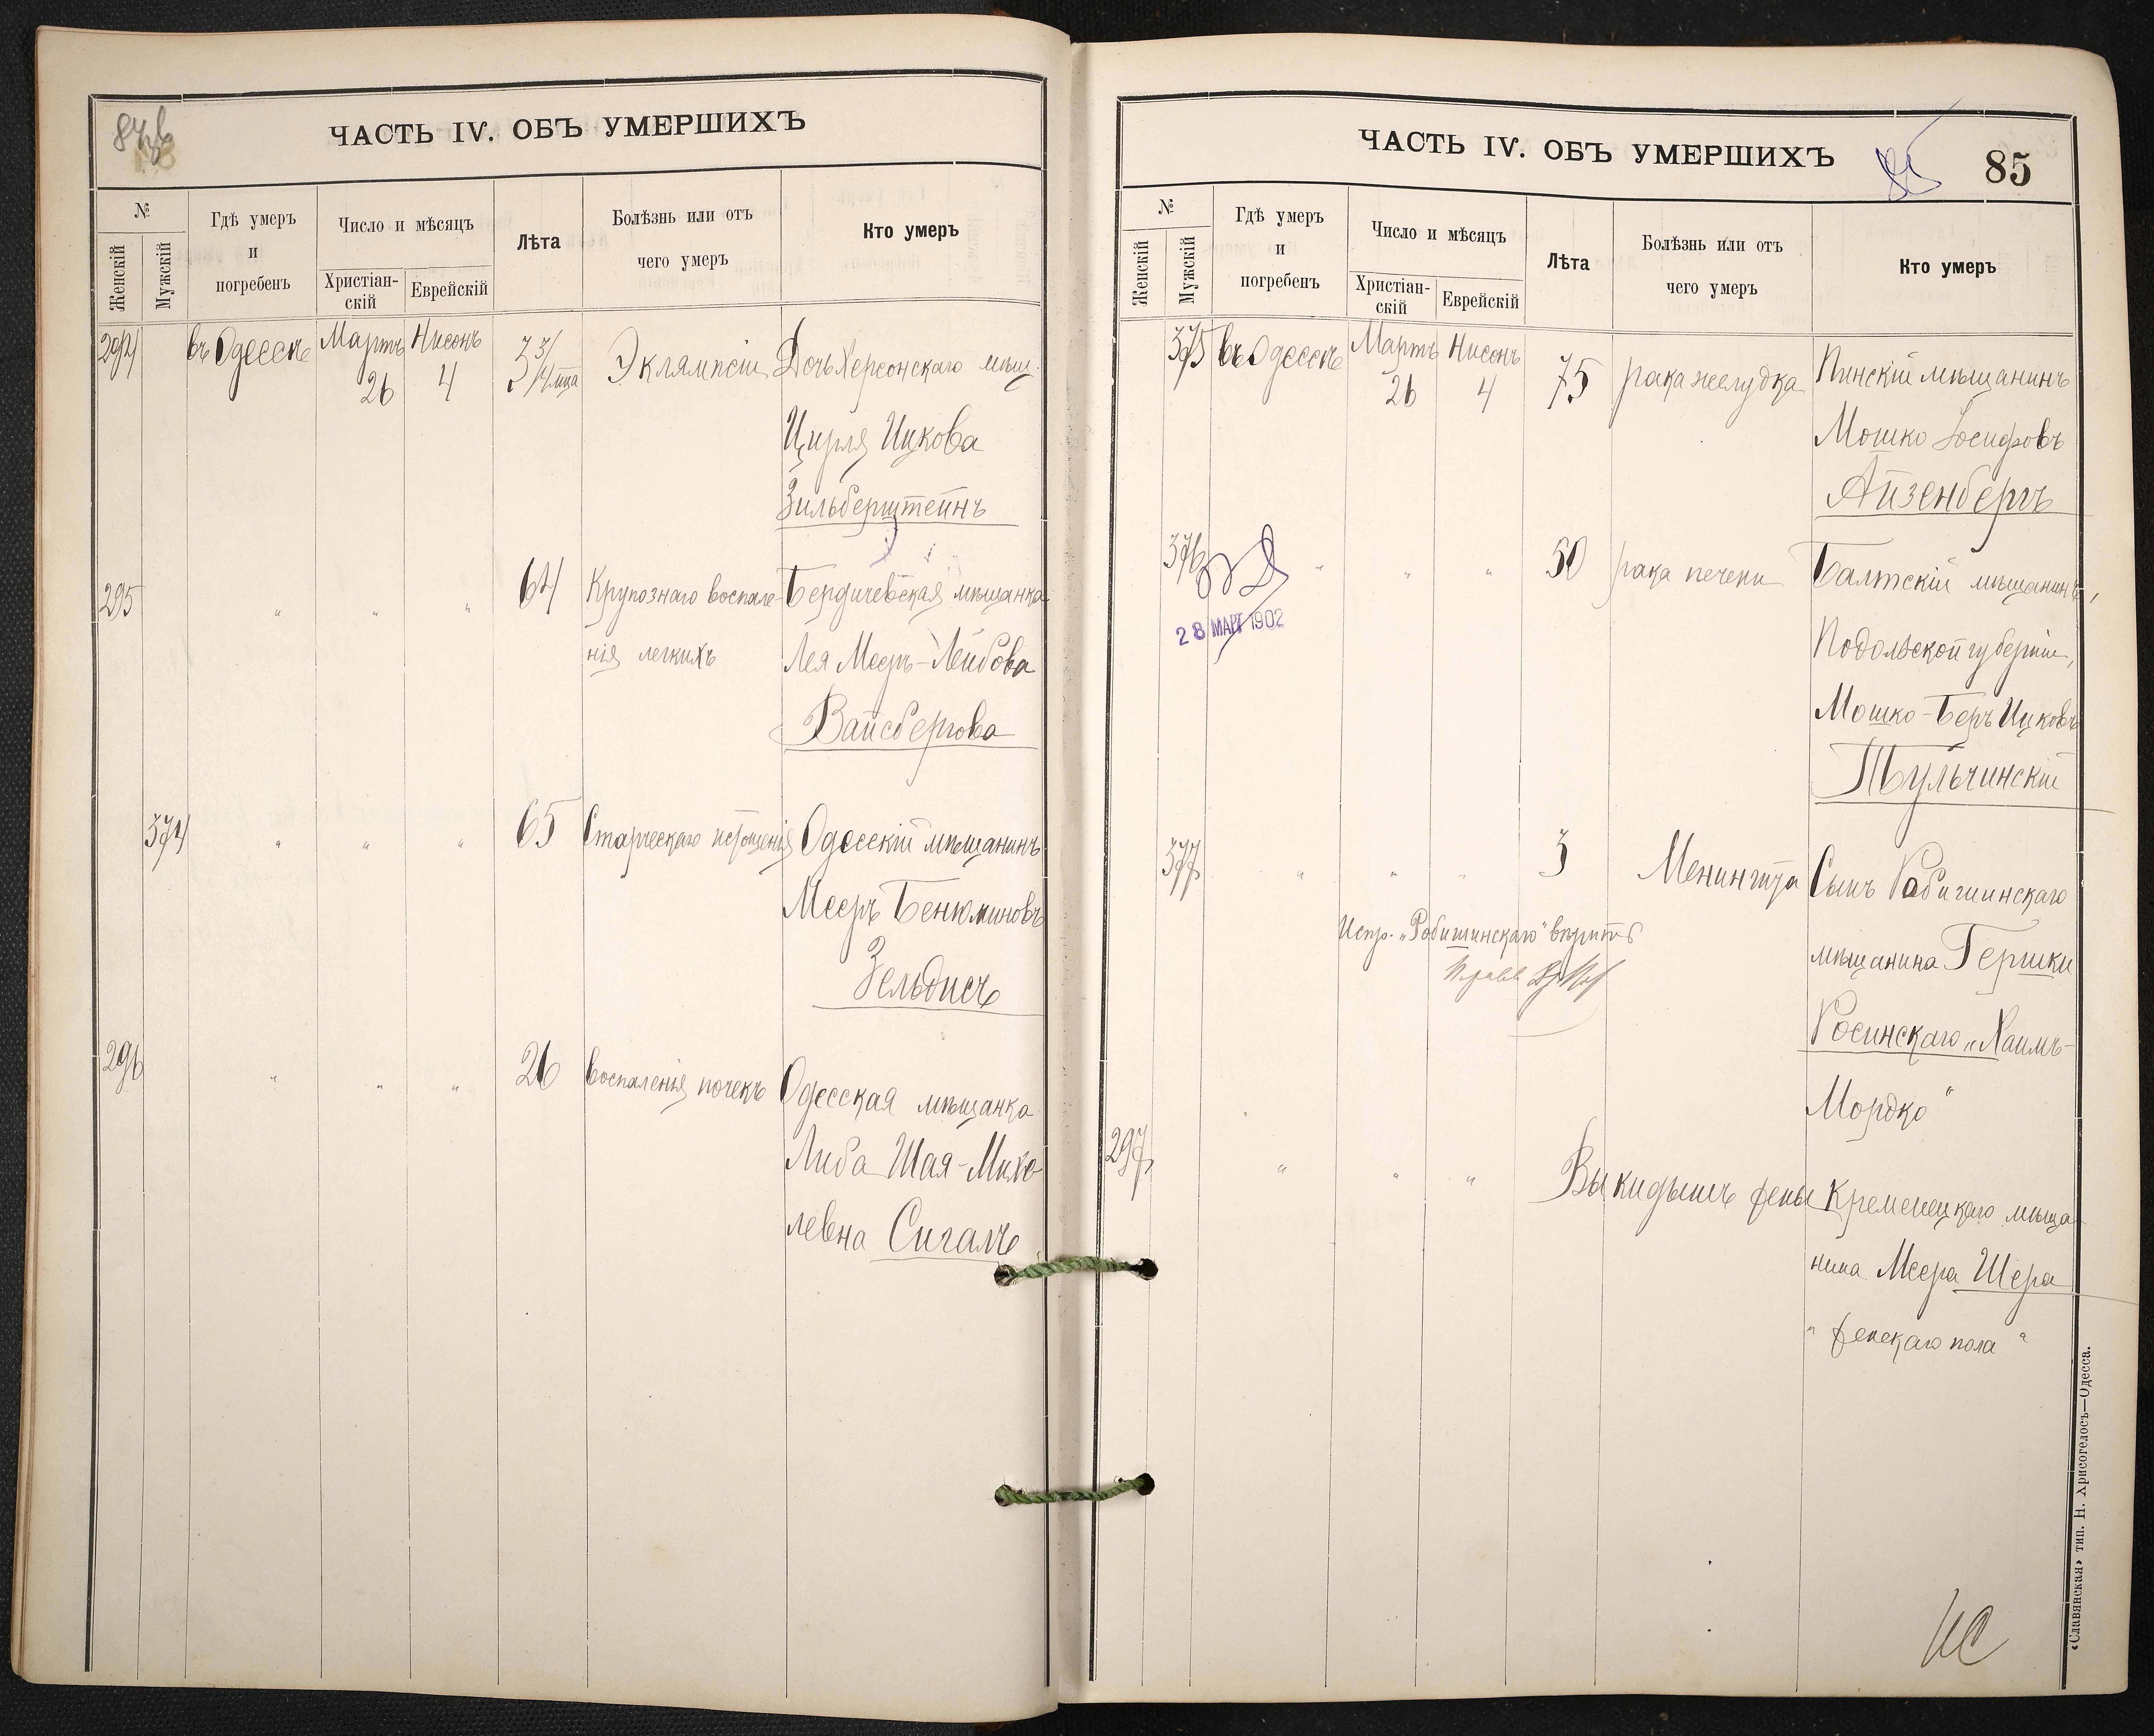 84об
ЧАСТЬ IV. ОБЪ УМЕРШИХЪ
№
Женскій
Мужскій
Гдѣ умеръ
и
погребенъ
Число и мѣсяцъ
Христіан-
скій
Еврейскій
Лѣта
Болѣзнь или отъ
чего умеръ
Кто умеръ
294 въ Одессѣ Мартъ 26 Нисонъ 4 3 3/4 мца Эклямпсіи Дочь Херсонскаго мѣщ.
Цирля Ицкова
Зильберштейнъ
295 " " " 64 Крупознаго воспале- Бердичевская мѣщанка
нія легкихъ Лея Меєръ-Лейбова
Вайсбергова
374 " " " 65 Старческаго истощенія Одесскій мѣщанинъ
Меєръ Бенюминовъ
Зельдисъ
296 " " " 26 воспаленія почекъ Одесская мѣщанка
Либа Шая-Михе-
левна Сигалъ
ЧАСТЬ IV. ОБЪ УМЕРШИХЪ
85
85
№
Женскій
Мужскій
Гдѣ умеръ
и
погребенъ
Число и мѣсяцъ
Христіан-
скій
Еврейскій
Лѣта
Болѣзнь или отъ
чего умеръ
Кто умеръ
375 въ Одессѣ Мартъ 26 Нисонъ 4 75 рака желудка Пинскій мѣщанинъ
Мошко Іосифовъ
Айзенбергъ
376 " " " 50 рака печени Балтскій мѣщанинъ,
28 МАР 1902
Подольской губерніи,
Мошко-Беръ Ицковъ
Тульчинскій
377 " " " 3 Менингита Сынъ Рабишинскаго
Испр. „Рабишинскаго" вѣрить
мѣщанина Гершки
Росинскаго „Хаимъ-
Мордко"
297 " " " Выкидышъ жены Кременецкаго мѣща-
нина Меера Шера
" женскаго пола "
«Славянская» тип. Н. Хрисогелосъ—Одесса.